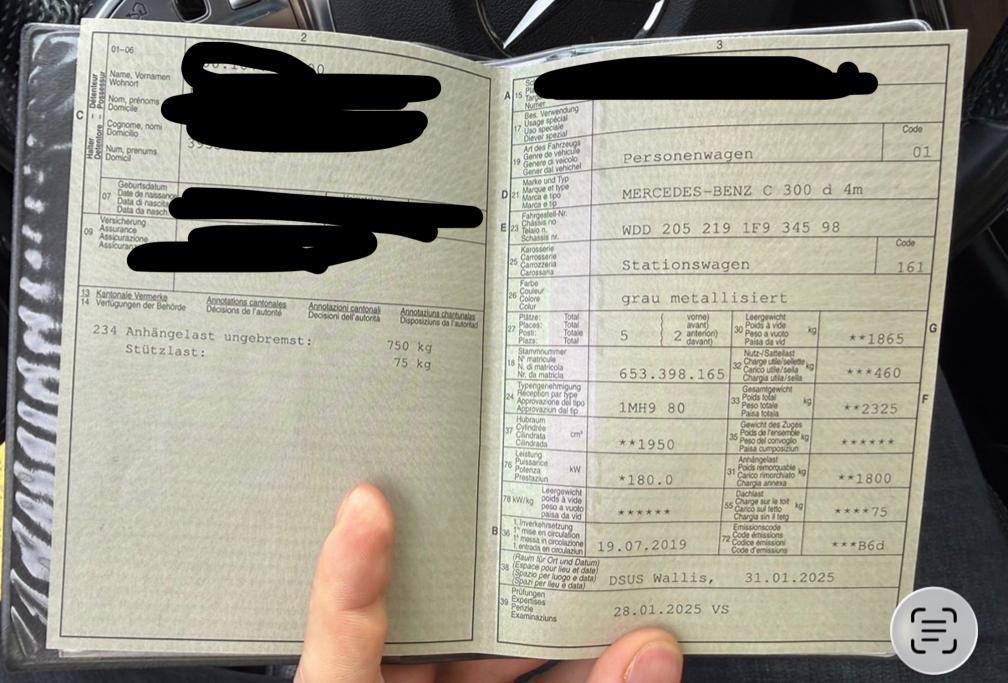 2
01-06
Name, Vornamen
Wohnort
Nom, prénoms
Domicile
Cognome, nomi
Domicilio
Num, prenums
Domicil
C
Halter Détenteur
Detentore Possessur
07
Geburtsdatum
Date de naissance
Data di nascita
Data da nasch.
09
Versicherung
Assurance
Assicurazione
13 Kantonale Vermerke
14 Verfügungen der Behörde
Annotations cantonales
Décisions de l'autorité
Annotazioni cantonali
Decisioni dell'autorità
Annotaziuns chantunalas
Disposiziuns da l'autoritad
234 Anhängelast ungebremst: 750 kg
Stützlast: 75 kg
3
A 15
Numer
17
Bes. Verwendung
Usage spécial
Uso speciale
Diever spezial
19
Art des Fahrzeugs
Genre de véhicule
Genere di veicolo
Gener dal vehichel
Personenwagen
Code
01
D 21
Marke und Typ
Marque et type
Marca e tipo
Marca e tip
MERCEDES-BENZ C 300 d 4m
E 23
Fahrgestell-Nr.
Châssis no
Telaio n.
Schassis nr.
WDD 205 219 1F9 345 98
25
Karosserie
Carrosserie
Carrozzeria
Carossaria
Stationswagen
Code
161
26
Farbe
Couleur
Colore
Colur
grau metallisiert
27
Plätze: Total
Places: Total
Posti: Totale
Plazs: Total
5
( vorne)
avant)
anteriori)
davant)
2
30
Leergewicht
Poids à vide
Peso a vuoto
Paisa da vid
kg
**1865
G
18
Stammnummer
N° matricule
N. di matricola
Nr. da matricla
653.398.165
32
Nutz-/Sattellast
Charge utile/sellette
Carico utile/sella
Chargia utila/sella
kg
***460
24
Typengenehmigung
Réception par type
Approvazione del tipo
Approvaziun dal tip
1MH9 80
33
Gesamtgewicht
Poids total
Peso totale
Paisa totala
kg
**2325
F
37
Hubraum
Cylindrée
Cilindrata
Cilindrada
cm³
**1950
35
Gewicht des Zuges
Poids de l'ensemble
Peso del convoglio
Paisa cumposiziun
kg
******
76
Leistung
Puissance
Potenza
Prestaziun
kW
*180.0
31
Anhängelast
Poids remorquable
Carico rimorchiato
Chargia annexa
kg
**1800
78 kW/kg
Leergewicht
poids à vide
peso a vuoto
paisa da vid
******
55
Dachlast
Charge sur le toit
Carico sul tetto
Chargia sin il tetg
kg
****75
B 36
1. Inverkehrsetzung
1re mise en circulation
1a messa in circolazione
1. entrada en circulaziun
19.07.2019
72
Emissionscode
Code émissions
Codice emissioni
Code d'emissiuns
***B6d
38
(Raum für Ort und Datum)
(Espace pour lieu et date)
(Spazio per luogo e data)
(Spazi per lieu e data)
DSUS Wallis, 31.01.2025
39
Prüfungen
Expertises
Perizie
Examinaziuns
28.01.2025 VS